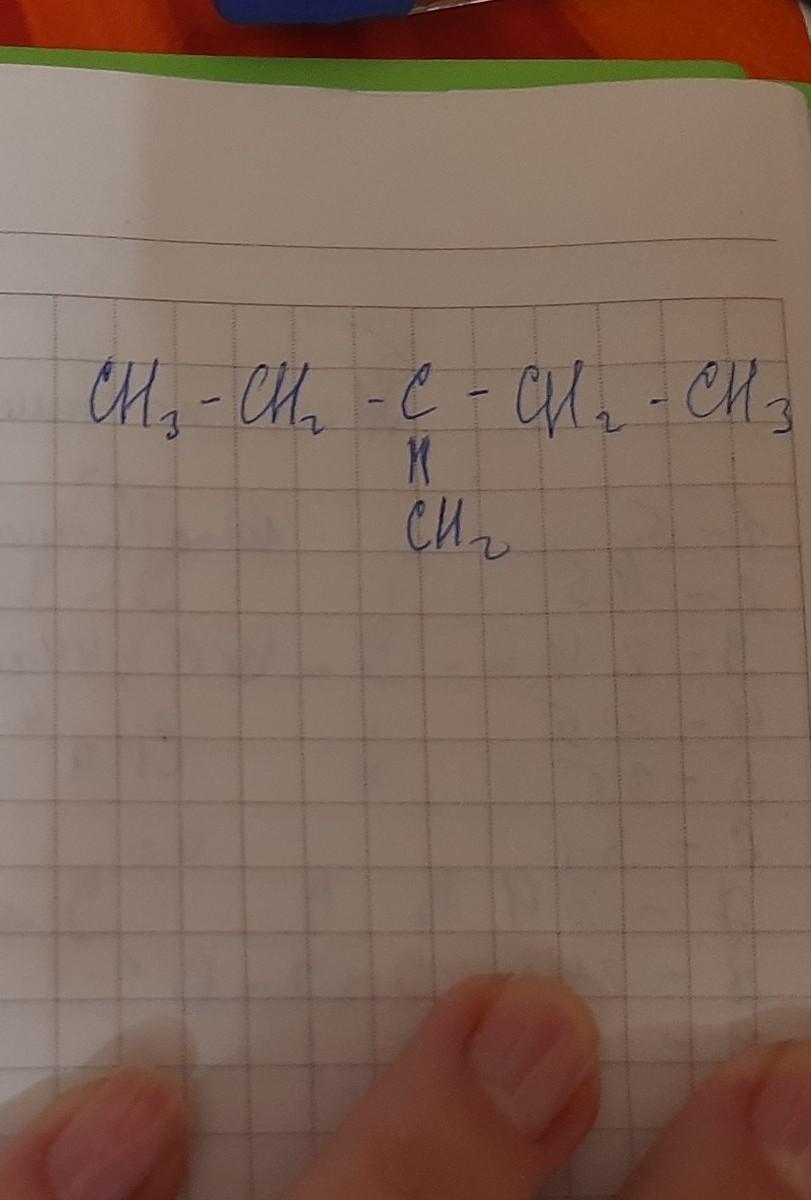 CH₃ - CH₂ - C - CH₂ - CH₃
||
CH₂